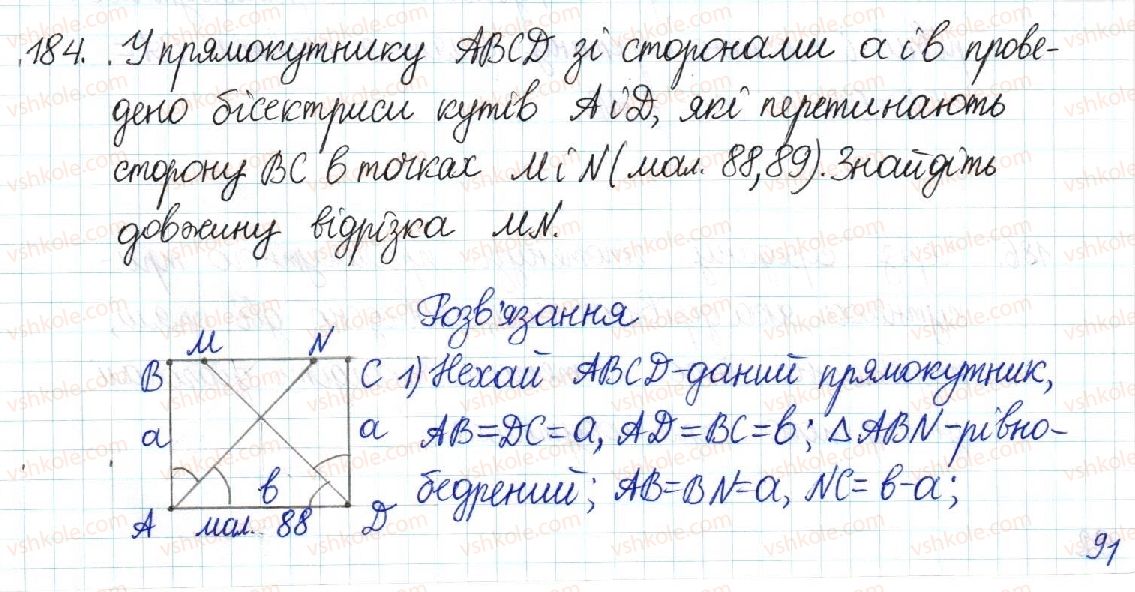 184. У прямокутнику ABCD зі сторонами a і b прове-
дено бісектриси кутів A і D, які перетинають
сторону BC в точках M і N (мал. 88, 89). Знайдіть
довжину відрізка MN.
Розв'язання
M N
B C
a a
b
A D
мал. 88
1) Нехай ABCD - даний прямокутник,
AB = DC = a, AD = BC = b; △ABN - рівно-
бедрений; AB = BN = a, NC = b - a;
91
vshkole.com